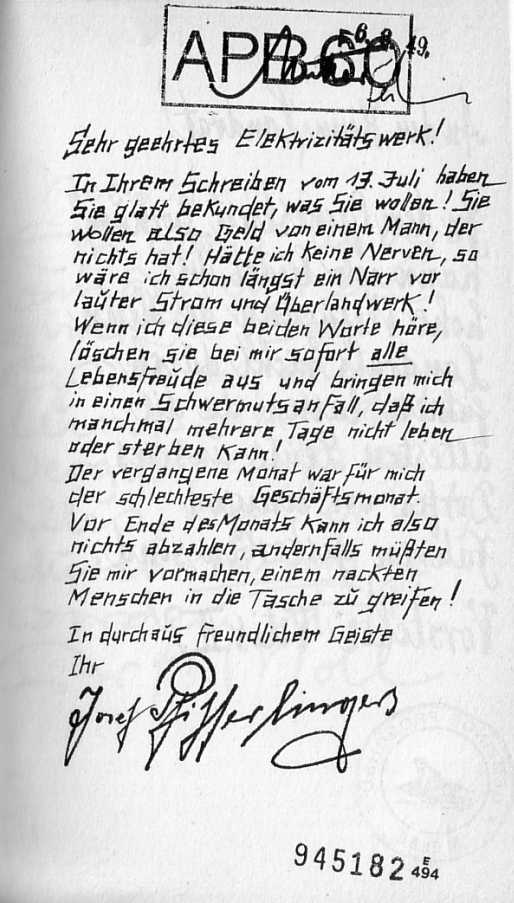 6. 8. 49.
Sehr geehrtes Elektrizitätswerk!
In Ihrem Schreiben vom 13. Juli haben
Sie glatt bekundet, was Sie wollen! Sie
wollen also Geld von einem Mann, der
nichts hat! Hätte ich keine Nerven, so
wäre ich schon längst ein Narr vor
lauter Strom und Überlandwerk!
Wenn ich diese beiden Worte höre,
löschen sie bei mir sofort alle
Lebensfreude aus und bringen mich
in einen Schwermutsanfall, daß ich
manchmal mehrere Tage nicht leben
oder sterben kann!
Der vergangene Monat war für mich
der schlechteste Geschäftsmonat.
Vor Ende des Monats kann ich also
nichts abzahlen, andernfalls müßten
Sie mir vormachen, einem nackten
Menschen in die Tasche zu greifen!
In durchaus freundlichem Geiste
Ihr
Josef Filserlingers
945182 E 494